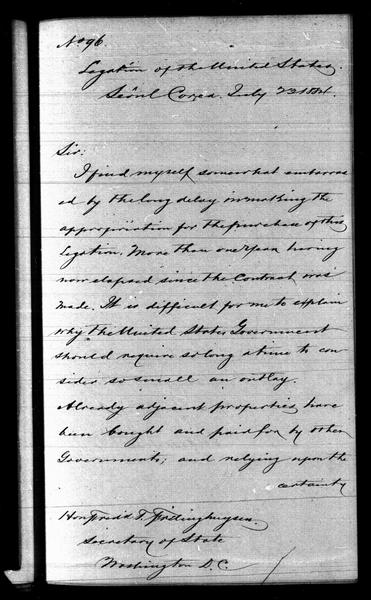 No 96.
Legation of the United States.
Seoul Corea. July 22 1884.
Sir:
I find myself somewhat embarras
ed by the long delay in making the
appropriation for the purchase of this
Legation. More than one year having
now elapsed since the Contract was
made. It is difficult for me to explain
why the United States Government
should require so long a time to con-
sider so small an outlay.
Already adjacent properties have
been bought and paid for by other
Governments; and relying upon the
certainty
Hon Fredk T. Frelinghuysen.
Secretary of State
Washington D.C.